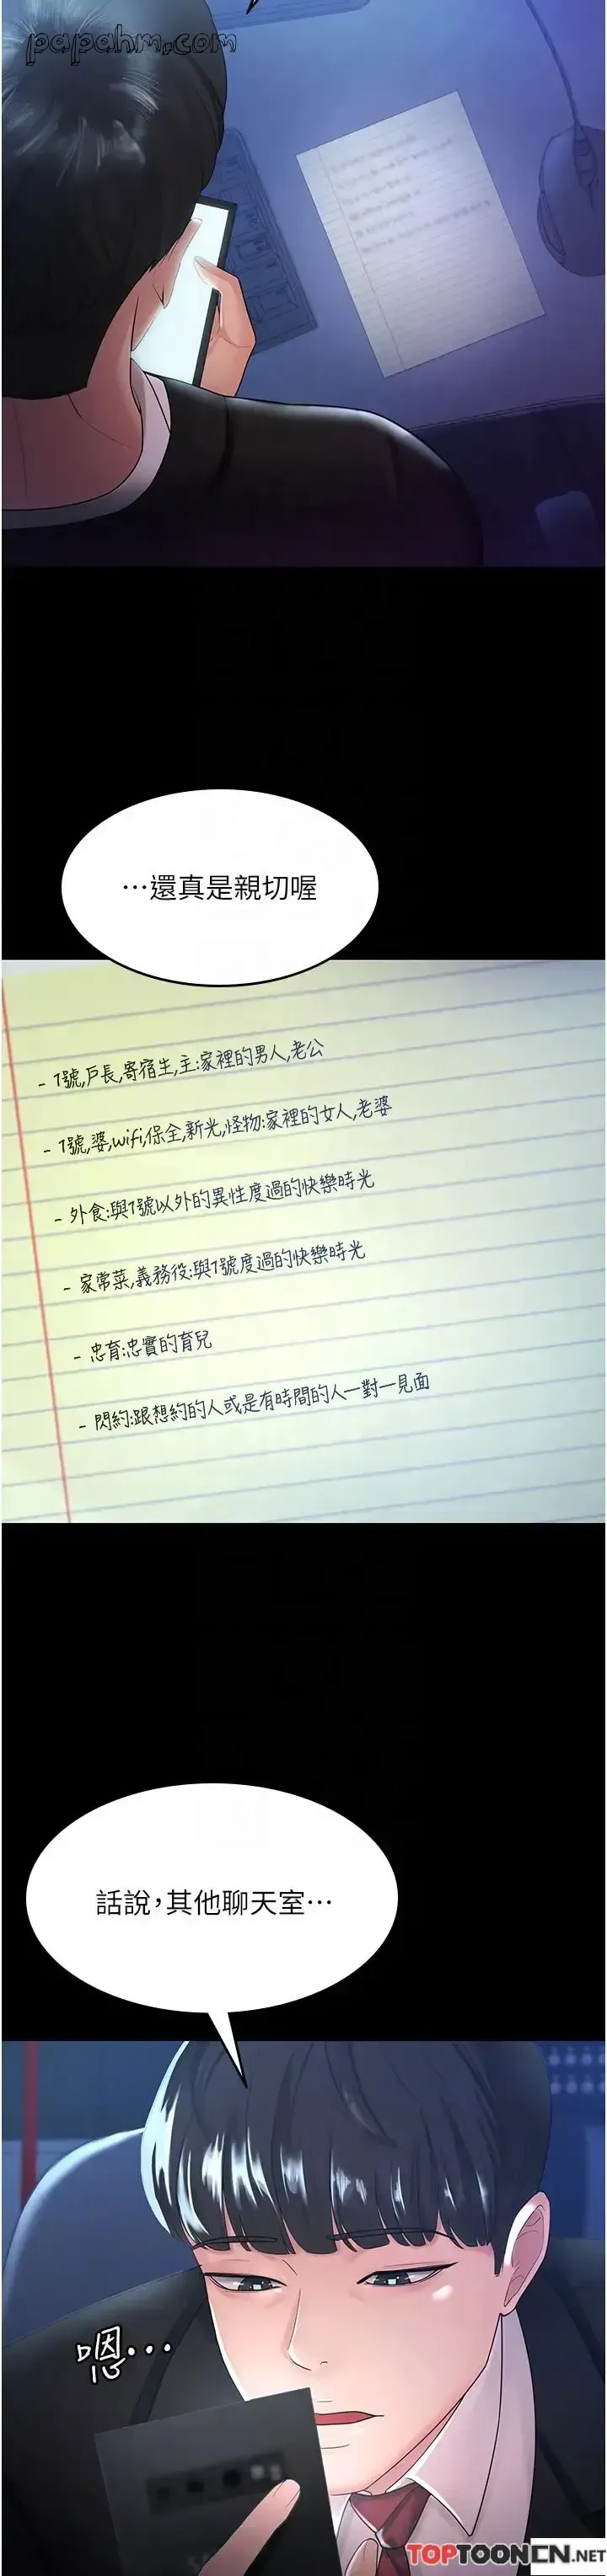 papahm.com
…還真是親切喔
- 1號,戶長,寄宿生,主:家裡的男人,老公
- 1號,婆,wifi,保全,新光,怪物:家裡的女人,老婆
- 外食:與1號以外的異性度過的快樂時光
- 家常菜,義務役:與1號度過的快樂時光
- 忠育:忠實的育兒
- 閃約:跟想約的人或是有時間的人一對一見面
話說,其他聊天室…
嗯…
TOPTOONCN.NET